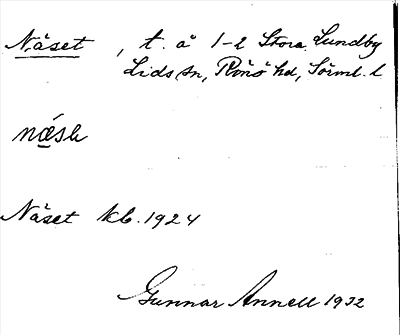 Näset , t. å 1-2 Stora Lundby
Lids sn, Rönö hd, Sörml. l
næ̀sh
Näset kb. 1924
Gunnar Annell 1932